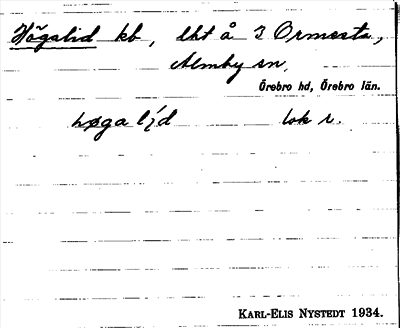 Högalid kb, lht å 3 Ormesta,
Almby sn,
Örebro hd, Örebro län.
høgalíd lok r.
KARL-ELIS NYSTEDT 1934.